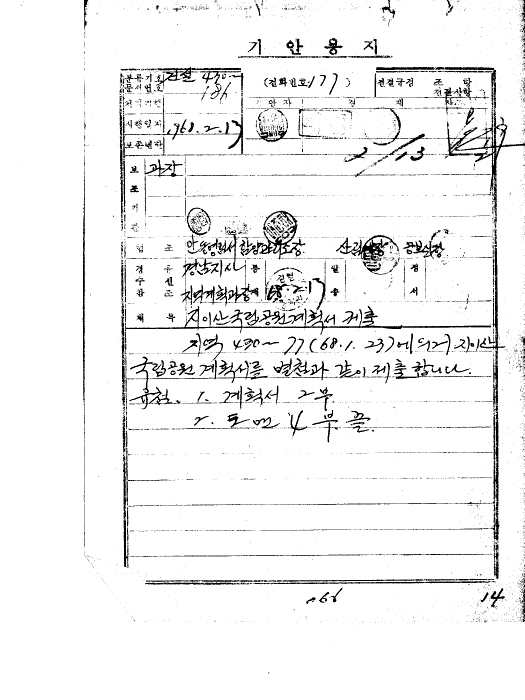 기 안 용 지
분류기호 문서번호 건설 430~ 186
(전화번호 177)
전결규정 조 항
전결사항
처리기간
기 안 자 결 재
시행일자 1968.2.17
보존년한
2/13
보 조 기 관 과장
협 조
경 유 수 신 참 조 경남지사
지역계획과장
68.2.17
제 목 지이산국립공원계획서 제출
지역 430~ 77 (68.1.23)에 의거 지이산
국립공원 계획서를 별첨과 같이 제출합니다.
유첨. 1. 계획서 2부
2. 도면 4부. 끝.
14